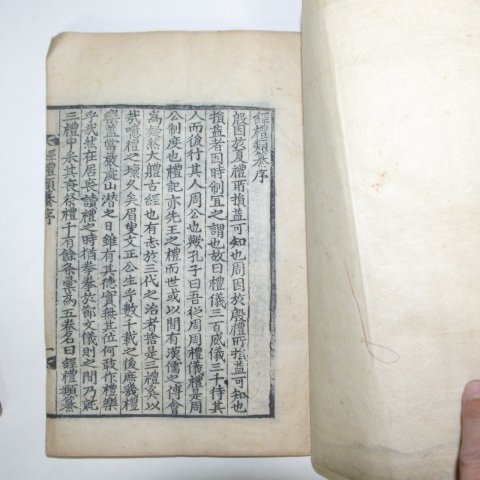 經禮類纂序
殷因於夏禮所損益可知也周因於殷禮所損益可知也
損益者因時制宜之謂也故曰禮儀三百威儀三千待其
人而後行其人周公也歟孔子曰吾從周周禮儀禮是周
公制度也禮記亦先王之禮而世或以間有漢儒之傅會
爲疑然大體古經也有志於三代之治者捨是三禮奚以
哉噫禮之壞久矣眉叟文正公生乎數千載之後慨爲禮
經蓋當巖處山潜之日雖有其德實無其位何敢作禮樂
乎哉然在居喪讀禮之時惓拳於節文儀則之間乃就
三禮中永其喪祭禮千有餘條彙爲五卷名曰經禮類纂
經禮類纂序
一